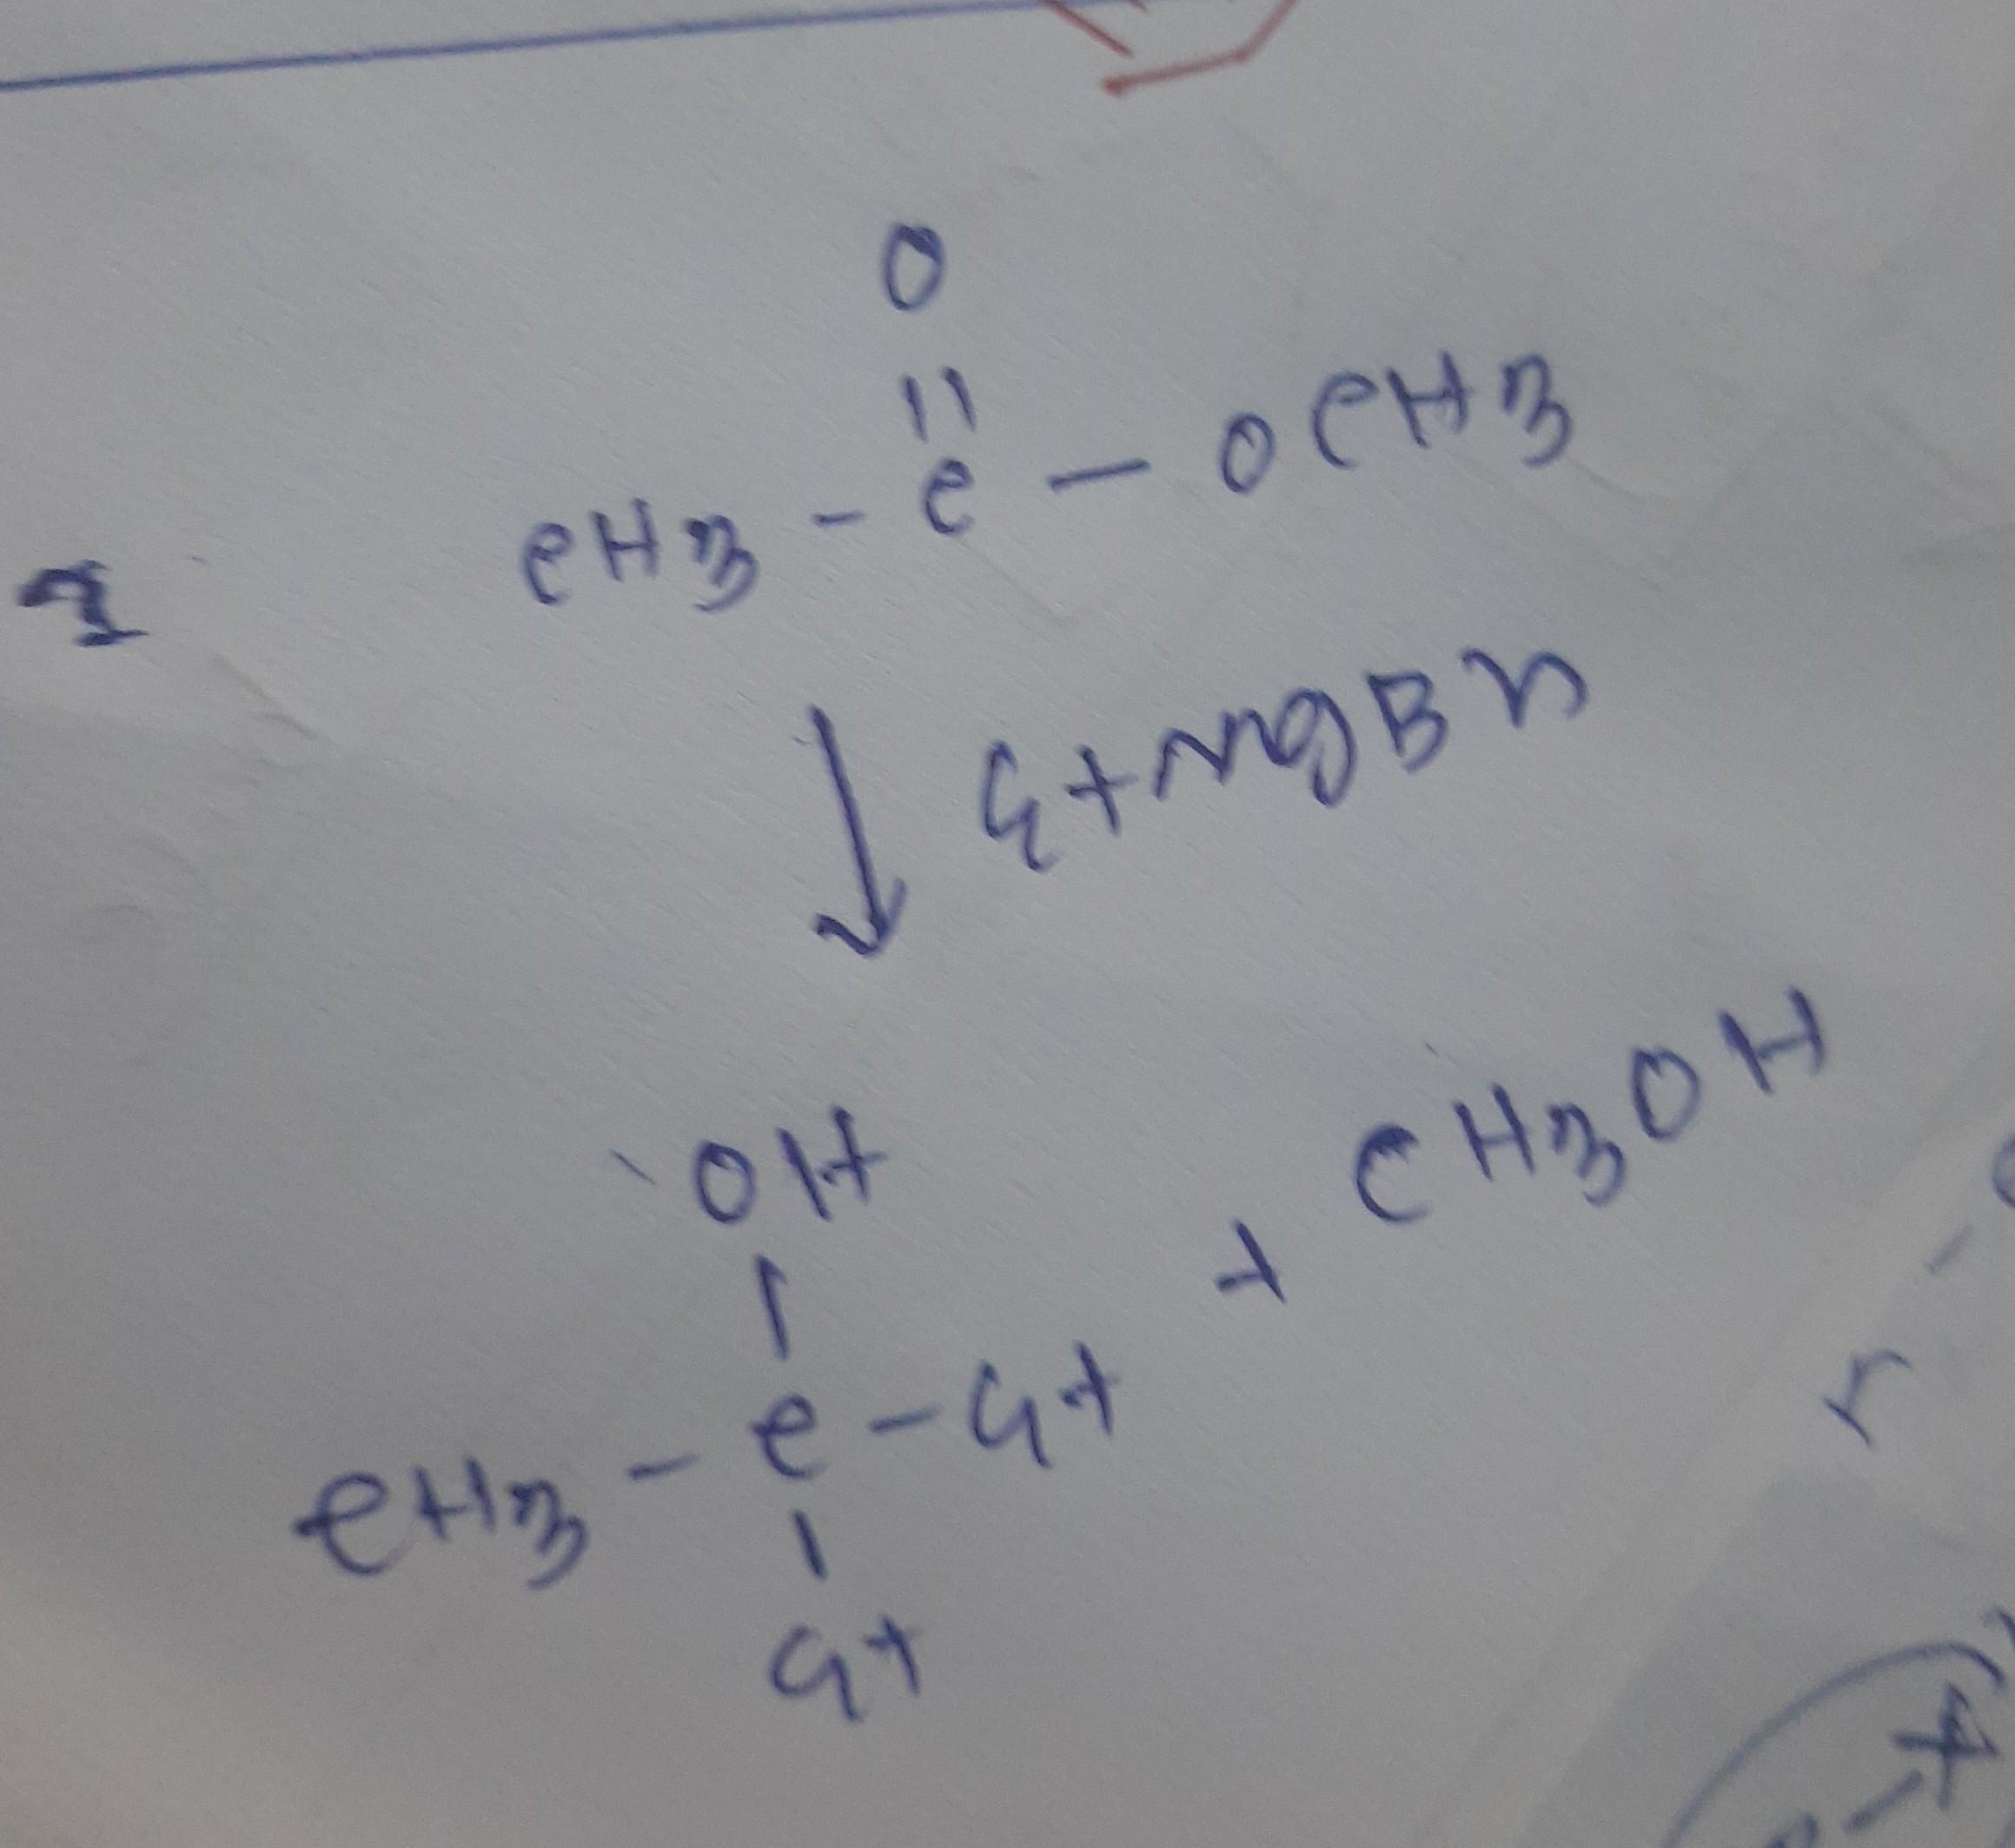 O
||
CH3 - C - OCH3
↓ EtMgBr
OH
|
CH3 - C - Et + CH3OH
|
Et